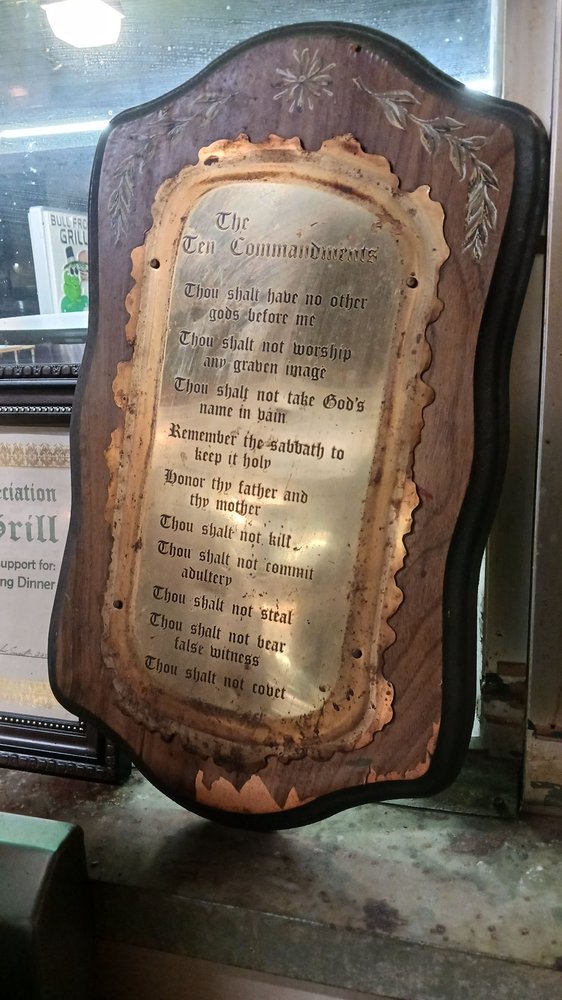 The
Ten Commandments
Thou shalt have no other
gods before me
Thou shalt not worship
any graven image
Thou shalt not take God's
name in vain
Remember the sabbath to
keep it holy
Honor thy father and
thy mother
Thou shalt not kill
Thou shalt not commit
adultery
Thou shalt not steal
Thou shalt not bear
false witness
Thou shalt not covet
BULL FRO
GRILL
eciation
Grill
upport for:
ng Dinner